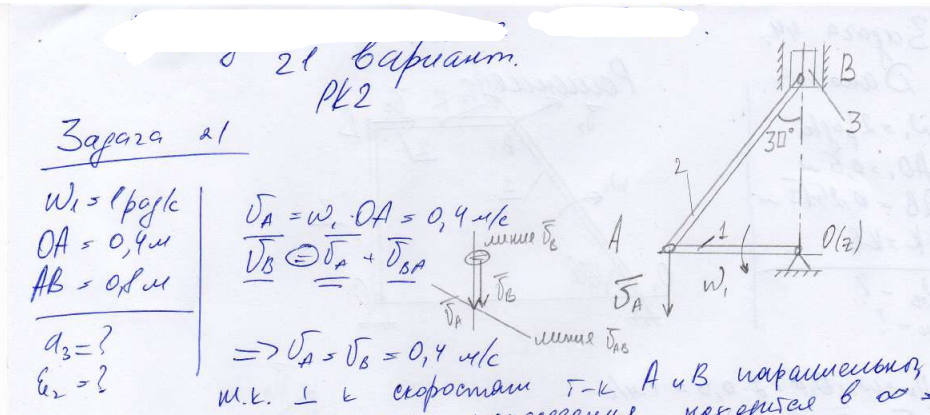 21 вариант.
РК2
Задача 21
ω₁ = 1 рад/с
OA = 0,4 м
AB = 0,8 м
a₃ = ?
ε₂ = ?
v̄_A = ω₁ · OA = 0,4 м/с
v̄_B = v̄_A + v̄_BA
линия v̄_B
v̄_B
v̄_A
линия v̄_AB
=> v_A = v_B = 0,4 м/с
т.к. ⊥ к скоростям т-к A и B параллельны,
находится в ∞ =
B
3
30°
2
A
1
O(z)
v̄_A
ω₁